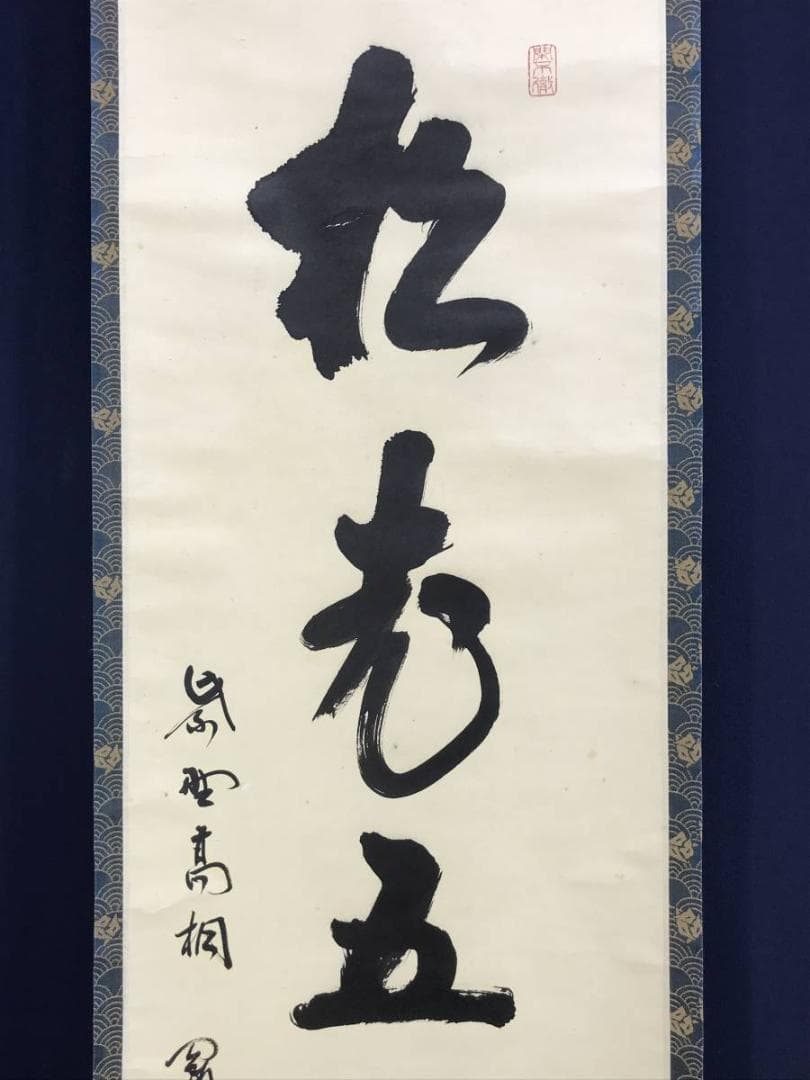 松老五
紫野高桐